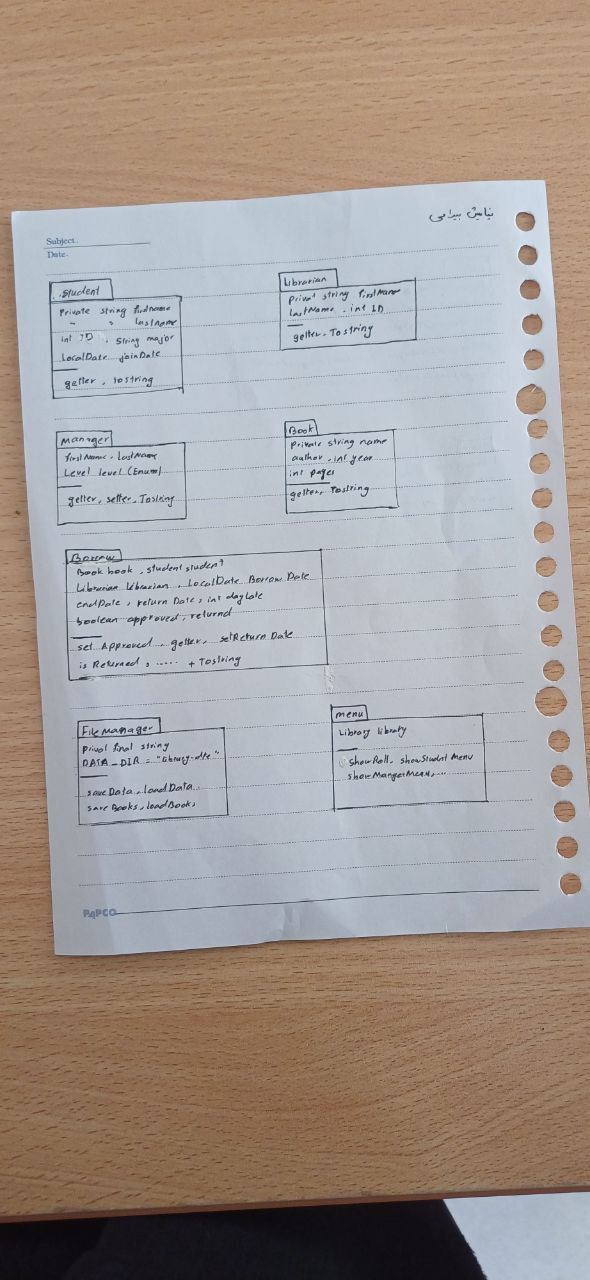 نیایش بیرامی
Subject:
Date:
Student
Private string firstname
" " lastname
int ID . String major
LocalDate joinDate
getter , tostring
Librarian
Privat string firstName
lastName . int ID
getter . Tostring
Manager
firstName , lastName
Level level (Enum)
getter, setter, Tostring
Book
Private string name
author , int year
int pages
getter, Tostring
Borrow
Book book , student student
Librarian librarian , LocalDate Borrow Date
endDate , return Date , int daylate
boolean approved , returnd
set Approved , getter , setReturn Date
is Returned , ..... + Tostring
File manager
Privat final string
DATA_DIR =
saveData , loadData
saveBooks , loadBooks
menu
Library library
showRoll, showStudent Menu
showMangerMenu, ...
PAPCO